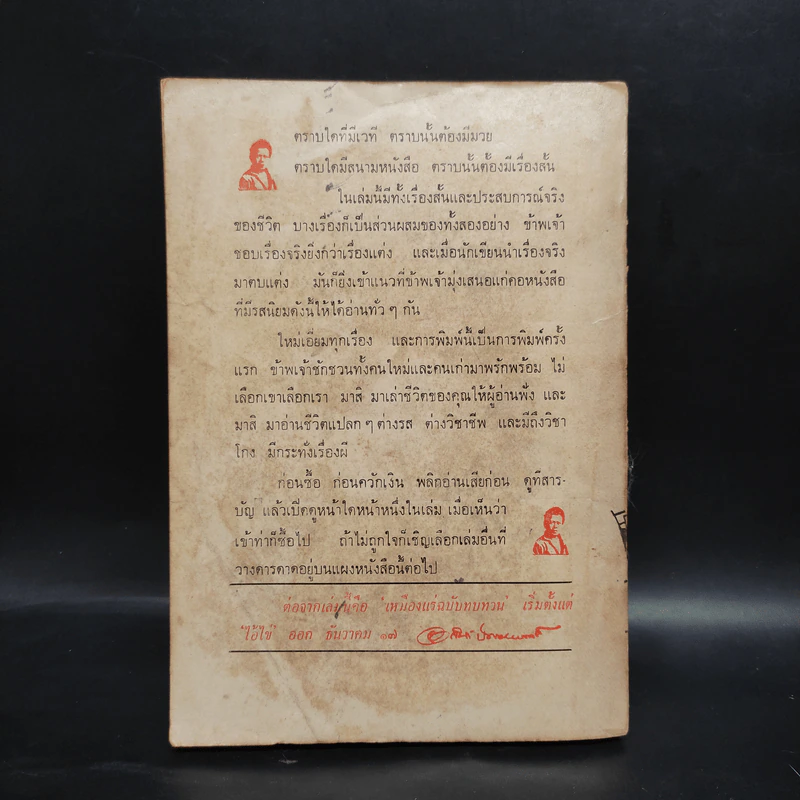 ตราบใดที่มีเวที ตราบนั้นต้องมีมวย
ตราบใดมีสนามหนังสือ ตราบนั้นต้องมีเรื่องสั้น
ในเล่มนี้มีทั้งเรื่องสั้นและประสบการณ์จริง
ของชีวิต บางเรื่องก็เป็นส่วนผสมของทั้งสองอย่าง ข้าพเจ้า
ชอบเรื่องจริงยิ่งกว่าเรื่องแต่ง และเมื่อนักเขียนนำเรื่องจริง
มาตบแต่ง มันก็ยิ่งเข้าแนวที่ข้าพเจ้ามุ่งเสนอแก่คอหนังสือ
ที่มีรสนิยมดังนี้ให้ได้อ่านทั่ว ๆ กัน
ใหม่เอี่ยมทุกเรื่อง และการพิมพ์นี้เป็นการพิมพ์ครั้ง
แรก ข้าพเจ้าชักชวนทั้งคนใหม่และคนเก่ามาพรักพร้อม ไม่
เลือกเขาเลือกเรา มาสิ มาเล่าชีวิตของคุณให้ผู้อ่านฟัง และ
มาสิ มาอ่านชีวิตแปลก ๆ ต่างรส ต่างวิชาชีพ และมีถึงวิชา
โกง มีกระทั่งเรื่องผี
ก่อนซื้อ ก่อนควักเงิน พลิกอ่านเสียก่อน ดูที่สาร-
บัญ แล้วเปิดดูหน้าใดหน้าหนึ่งในเล่ม เมื่อเห็นว่า
เข้าท่าก็ซื้อไป ถ้าไม่ถูกใจก็เชิญเลือกเล่มอื่นที่
วางดารดาดอยู่บนแผงหนังสือนี้ต่อไป
ต่อจากเล่มนี้คือ 'เหมืองแร่ฉบับทบทวน' เริ่มตั้งแต่
'ไอ้ไข่' ออก ธันวาคม ๑๗